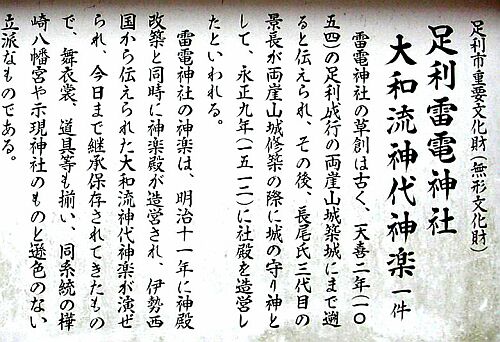 足利市重要文化財(無形文化財)
足利雷電神社
大和流神代神楽一件
雷電神社の草創は古く、天喜二年(一〇
五四)の足利成行の両崖山城築城にまで遡
ると伝えられ、その後、長尾氏三代目の
景長が両崖山城修築の際に城の守り神と
して、永正九年(一五一二)に社殿を造営し
たといわれる。
雷電神社の神楽は、明治十一年に神殿
改築と同時に神楽殿が造営され、伊勢西
国から伝えられた大和流神代神楽が演ぜ
られ、今日まで継承保存されてきたもの
で、舞衣裳、道具等も揃い、同系統の樺
崎八幡宮や示現神社のものと遜色のない
立派なものである。